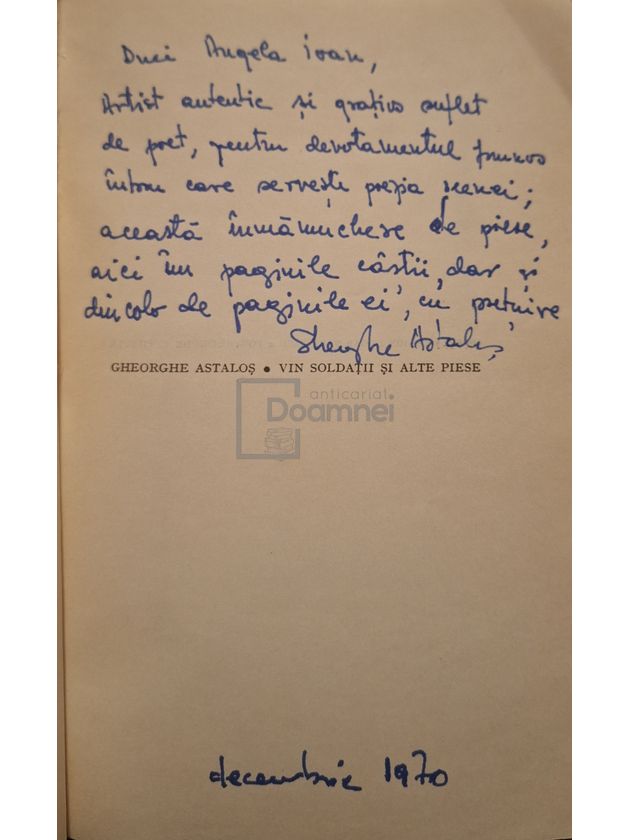 Dnei Angela Ioan,
Artist autentic și grațios suflet
de poet, pentru devotamentul frumos
întru care servește poezia scenei;
această înmănunchere de piese,
aici în paginile cărții, dar și
dincolo de paginile ei, cu prețuire
Gheorghe Astaloș
GHEORGHE ASTALOȘ • VIN SOLDAȚII ȘI ALTE PIESE
anticariat
Doamnei
decembrie 1970